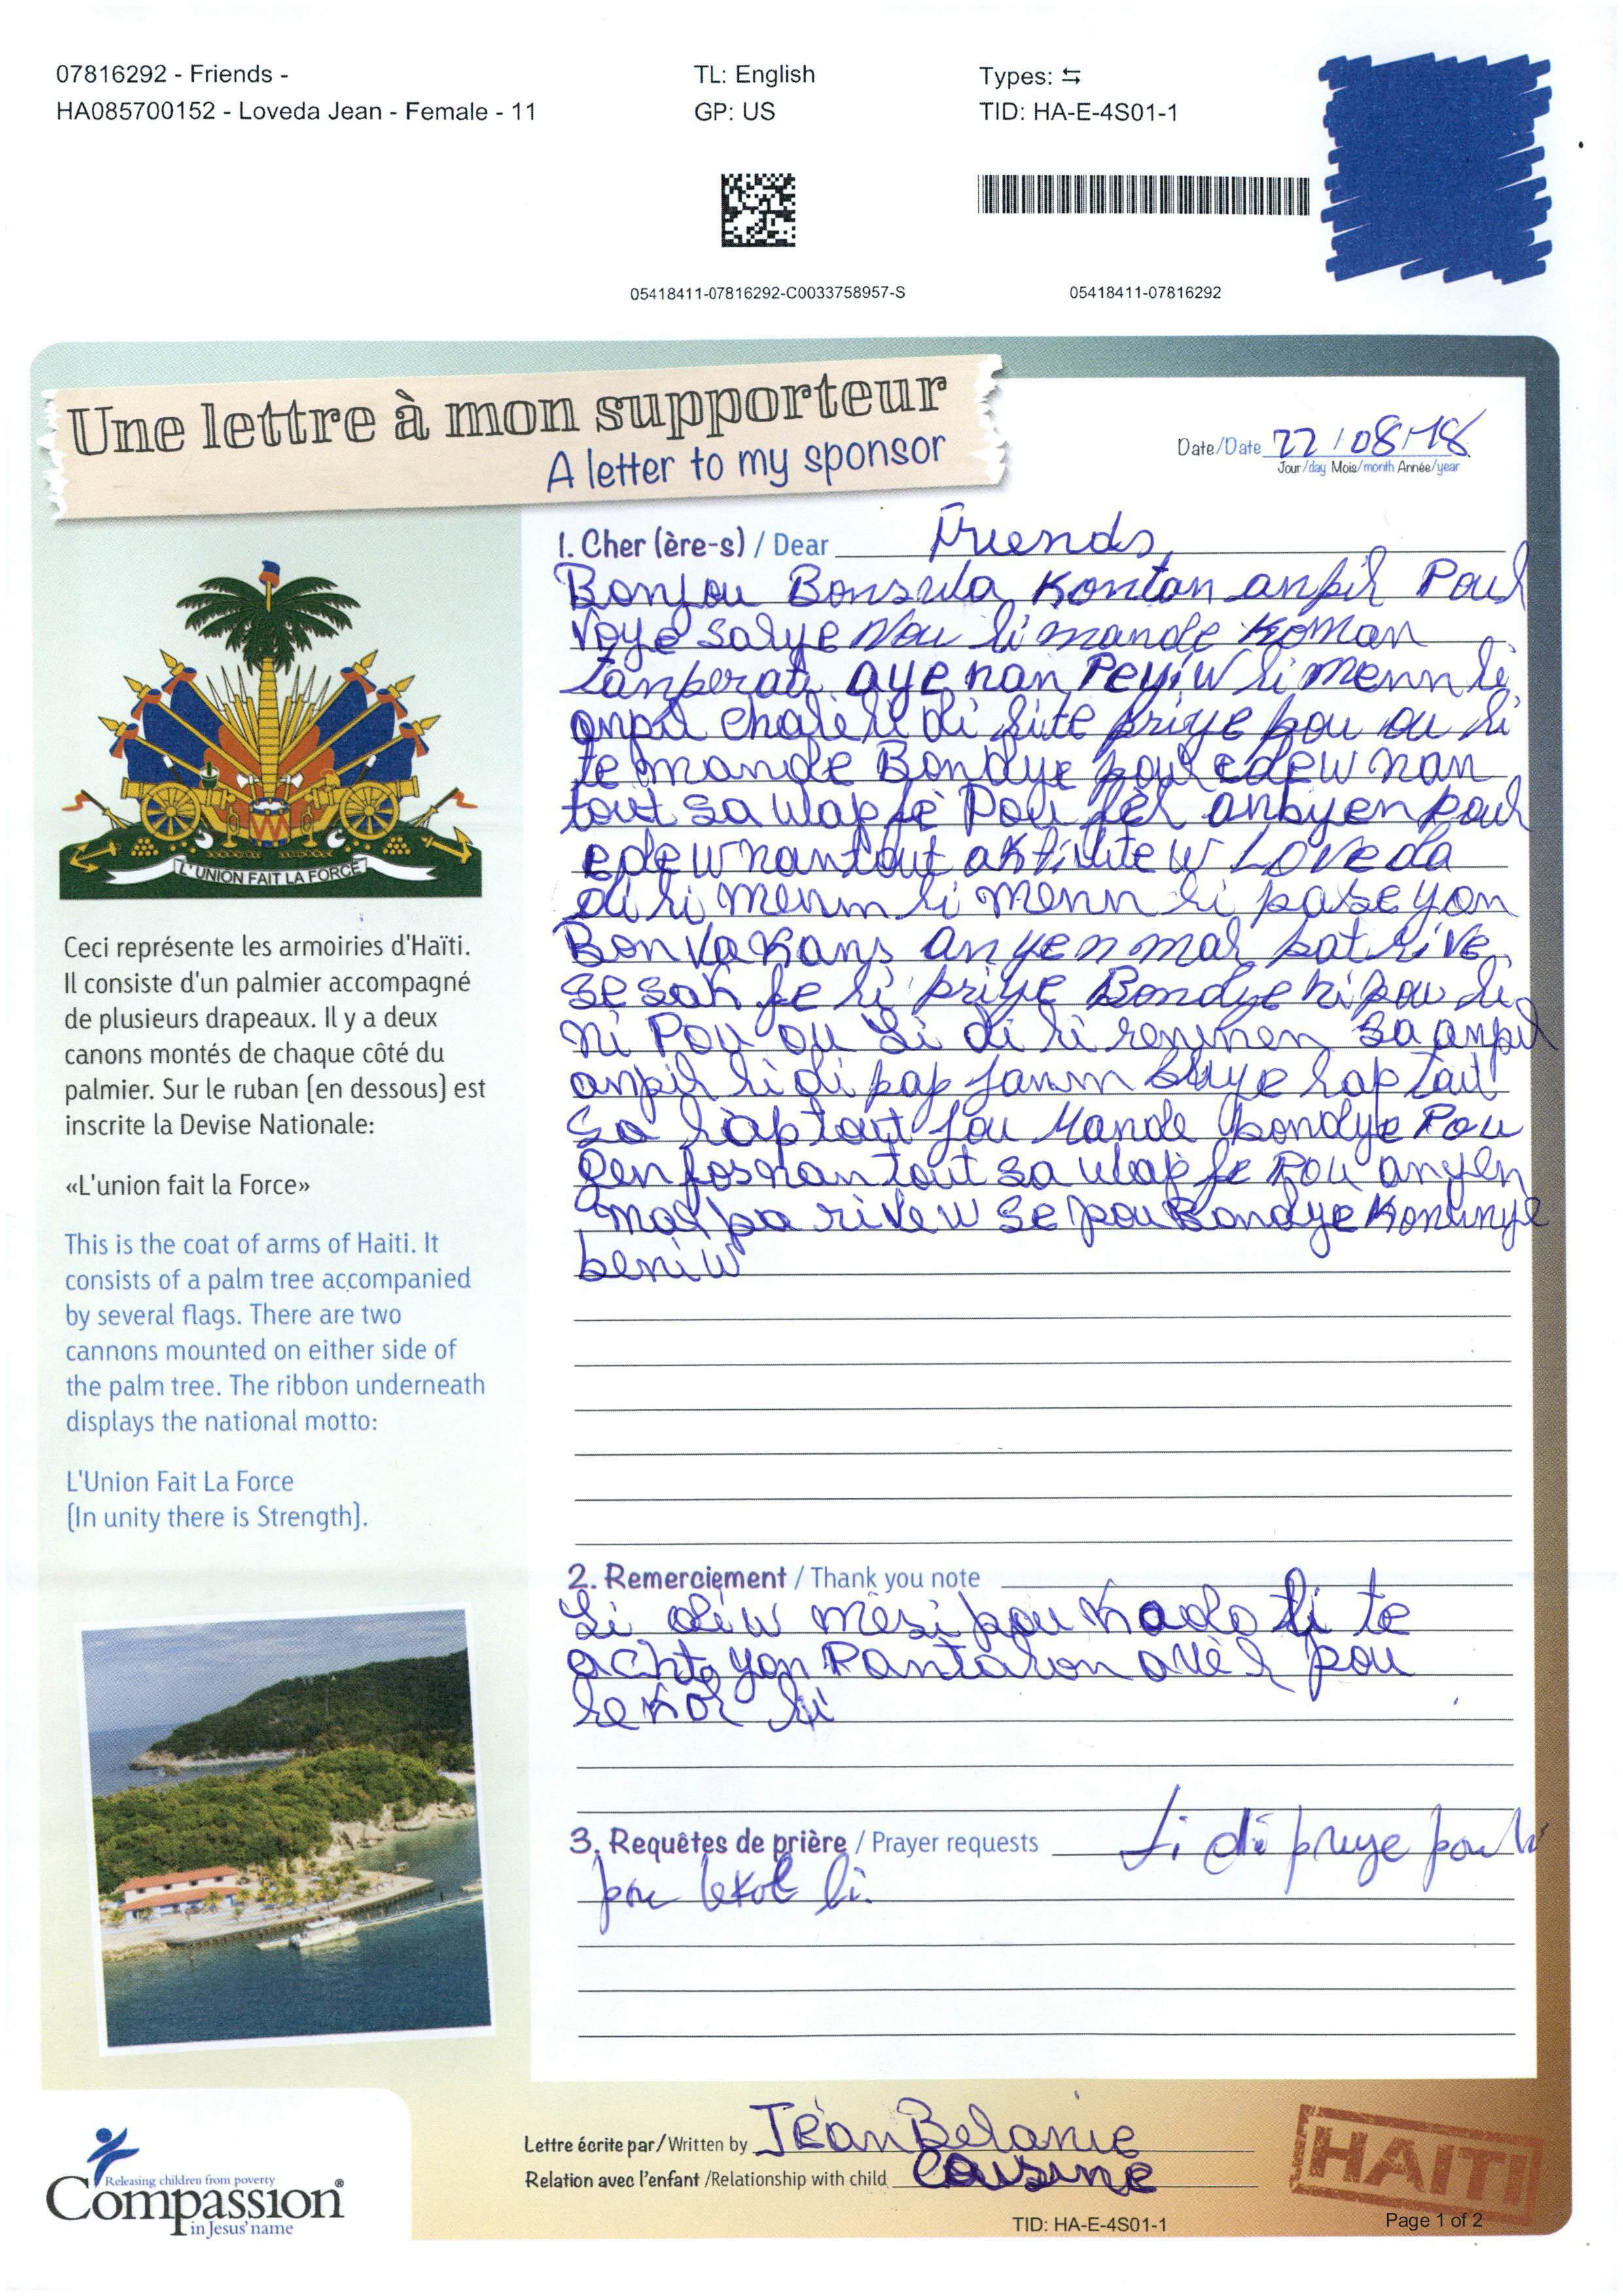 07816292 - Friends -
HA085700152 - Loveda Jean - Female - 11
TL: English
GP: US
Types: ⇆
TID: HA-E-4S01-1
05418411-07816292-C0033758957-S
05418411-07816292
Une lettre à mon supporteur
A letter to my sponsor
Date/Date 22/08/18
Jour/day Mois/month Année/year
L'UNION FAIT LA FORCE
Ceci représente les armoiries d'Haïti.
Il consiste d'un palmier accompagné
de plusieurs drapeaux. Il y a deux
canons montés de chaque côté du
palmier. Sur le ruban (en dessous) est
inscrite la Devise Nationale:
«L'union fait la Force»
This is the coat of arms of Haiti. It
consists of a palm tree accompanied
by several flags. There are two
cannons mounted on either side of
the palm tree. The ribbon underneath
displays the national motto:
L'Union Fait La Force
(In unity there is Strength).
1. Cher (ère-s) / Dear Friends,
Bonjou Bonswa la kontan anpil Poul
voye salye Nou li mande koman
tanperati aye nan Peyiw li menm li
anpil chalè li di li te priye pou ou li
te mande Bondye poul edew nan
tout sa wlap fè Pou fèl anbyen poul
edew nan tout aktivite w Loveda
di li menm li menm li pase yon
Bon Vakans anyen mal pat rive
se sak fe li priye Bondye ni pou li
ni Pou ou Li di li renmen sa anpil
anpil li di pap janm bliye lap tout
sa lap tout jou Mande bondye Pou
gen fos nan tout sa wlap fe Pou anyen
mal pa rive w se pou Bondye kontinye
beni w
2. Remerciement / Thank you note
Li di w mèsi pou kado li te
achte yon Pantalon avèl pou
lekol li
3. Requêtes de prière / Prayer requests Li di priye pou li
pou lekol li.
Lettre écrite par/Written by Jean Belanie
Relation avec l'enfant /Relationship with child Cousine
Releasing children from poverty
Compassion®
in Jesus' name
HAITI
TID: HA-E-4S01-1
Page 1 of 2